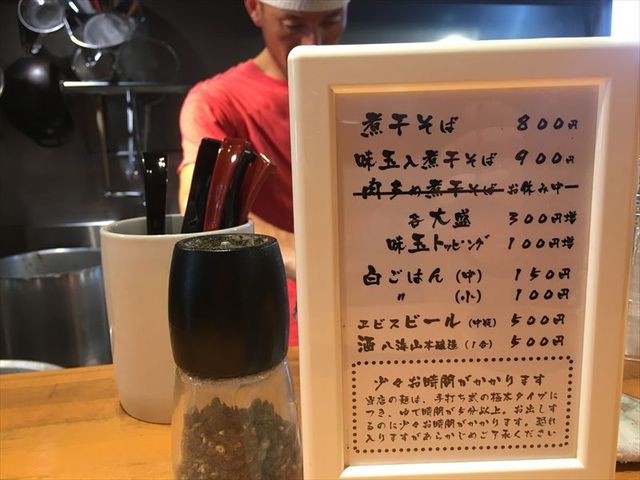 煮干そば 800円
味玉入煮干そば 900円
肉多め煮干そば お休み中
各大盛 300円増
味玉トッピング 100円増
白ごはん (中) 150円
〃 (小) 100円
ヱビスビール (中瓶) 500円
酒 八海山本醸造 (1合) 500円
少々お時間がかかります
当店の麺は、手打ち式の極太タイプに
つき、ゆで時間が5分以上。お出しす
るのに少々お時間がかかります。恐れ
入りますがあらかじめご了承ください